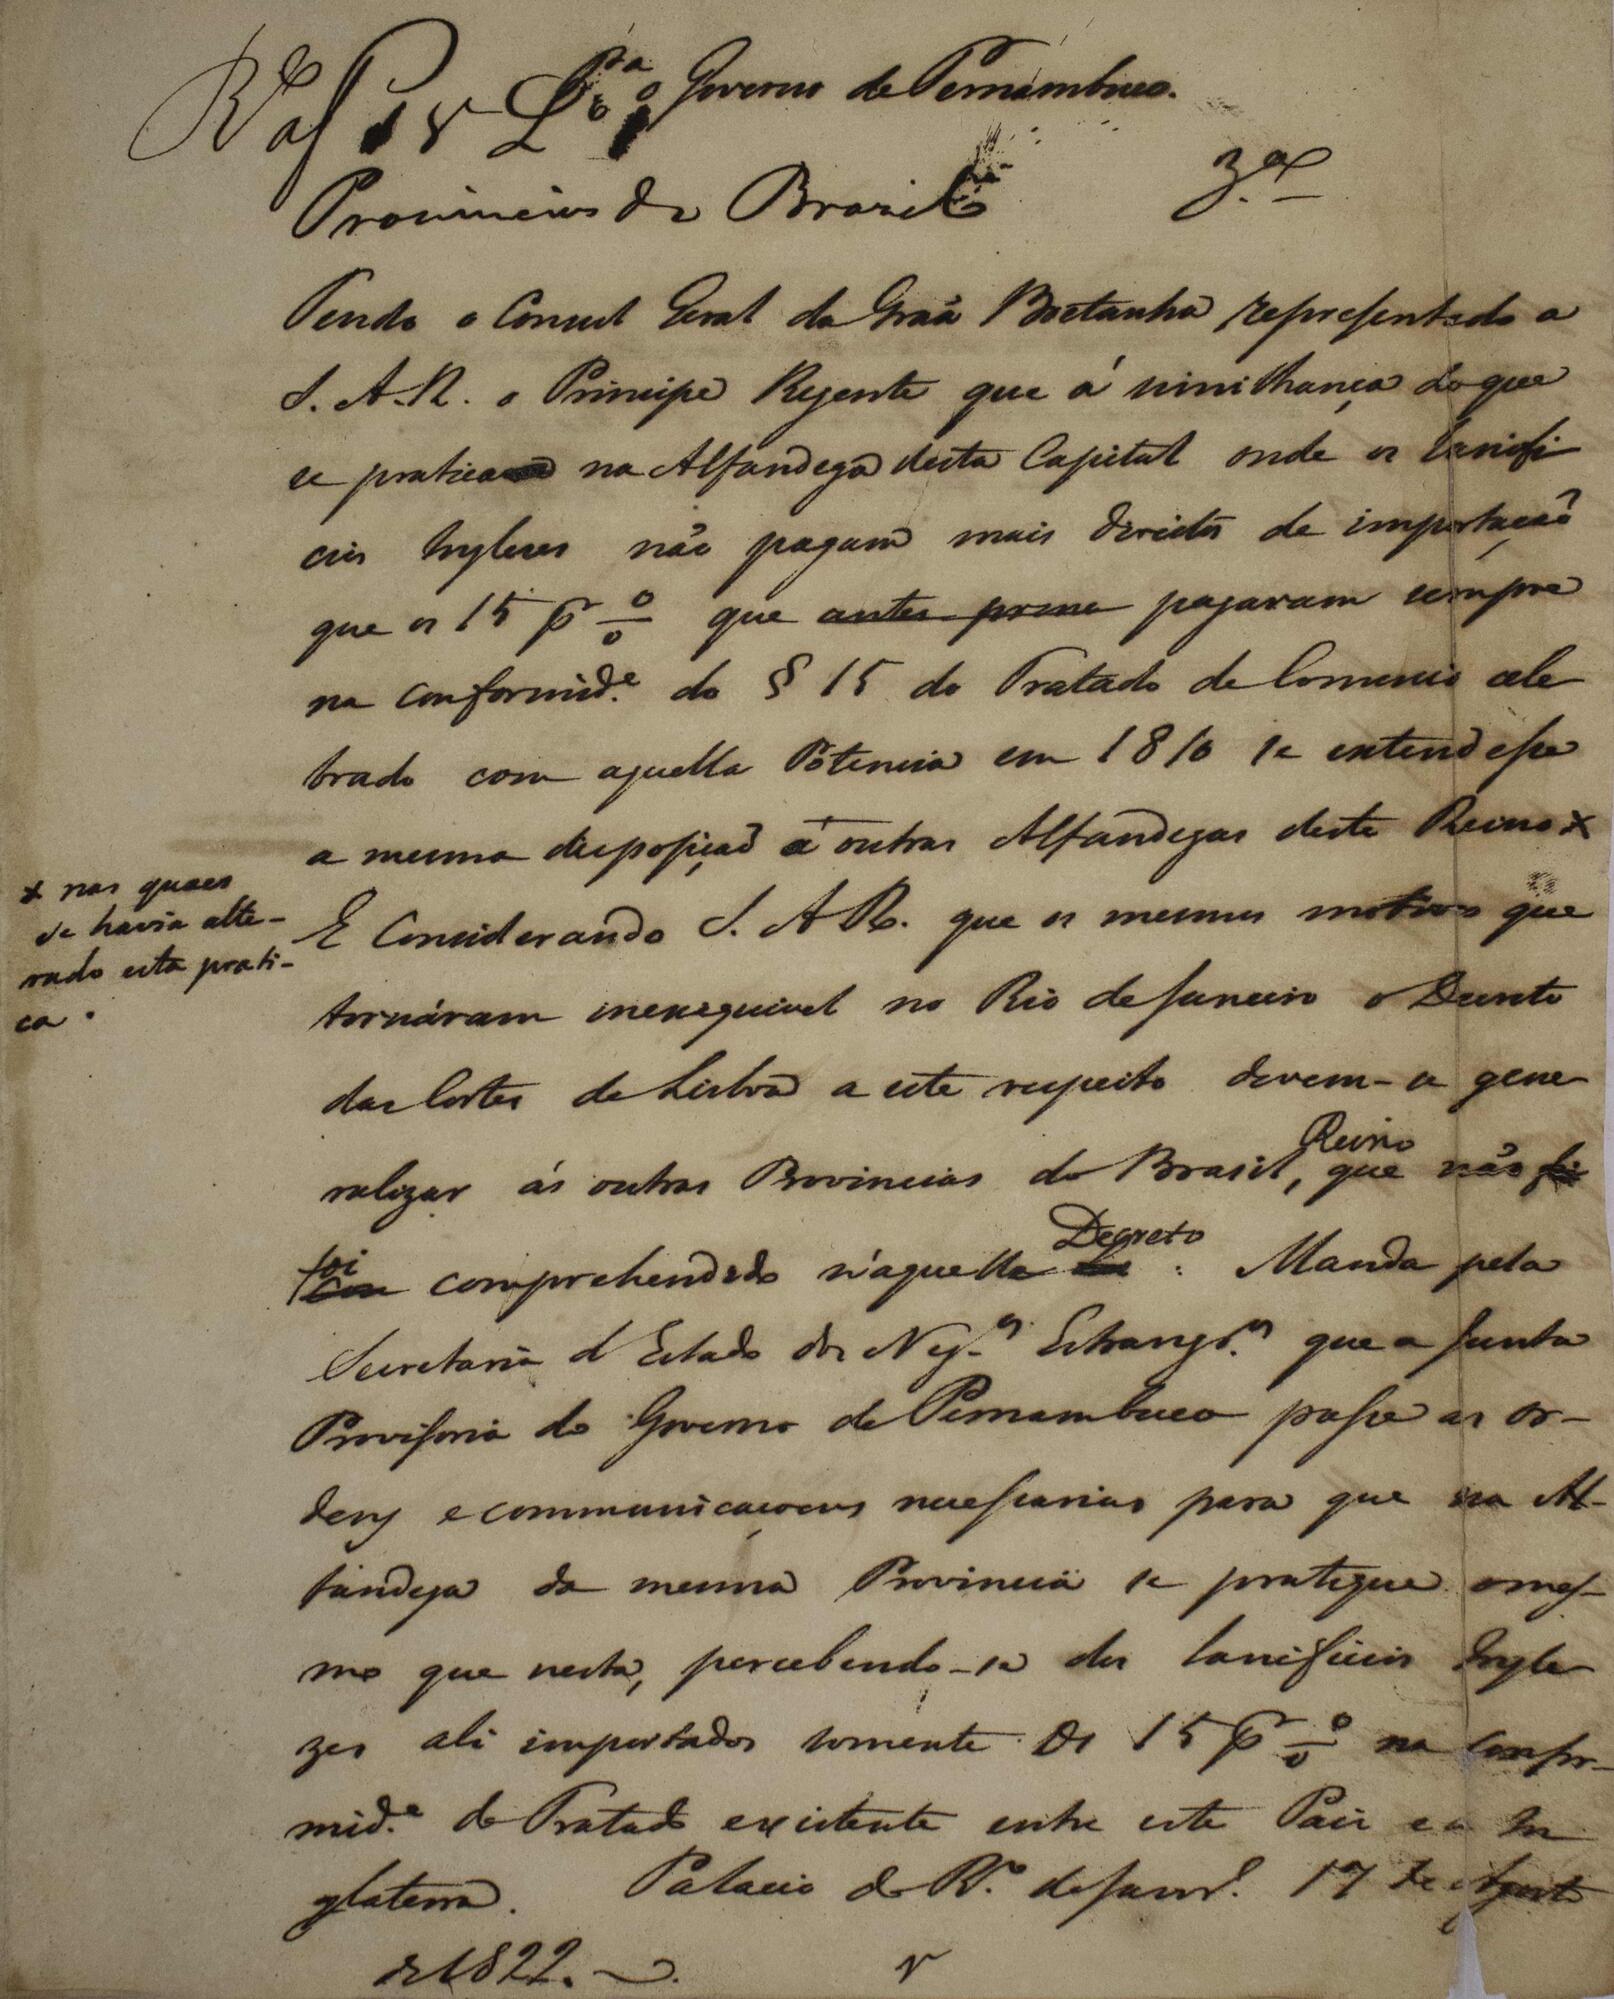 P.ª o Governo de Pernambuco.
R.da af 18 L.º 1
Provincias do Brazil 3.ª
Tendo o Consul Geral da Graã Bretanha representado a
S. A. R. o Principe Regente que á similhança do que
se pratica na Alfandega desta Capital onde os lanifi
cios Inglezes não pagam mais direitos de importação
que os 15 p % que antes pagavam sempre
na conformid.e do § 15 do Tratado de Comercio cele
brado com aquella Potencia em 1810 se extendesse
a mesma disposição á outras Alfandegas deste Reino x
x nas quaes
se havia alte-
rado esta prati-
ca.
E Considerando S. A. R. que os mesmos motivos que
tornáram inexequivel no Rio de Janeiro o Decreto
das Cortes de Lisboa a este respeito devem-se gene
ralizar ás outras Provincias do Brasil, Reino que não
foi comprehendido n'aquelle Decreto : Manda pela
Secretaria d'Estado dos Neg.os Estrangr.os que a Junta
Provisoria do Governo de Pernambuco passe as or-
dens e communicacoens necessarias para que na Al-
fandega da mesma Provincia se pratique o mes-
mo que nesta, percebendo-se dos lanificios Ingle
zes ali importados somente os 15 p % na confor-
mid.e do Tratado existente entre este Paiz e a In
glaterra. Palacio do R.º de Janr.º 17 de Agosto
de 1822.